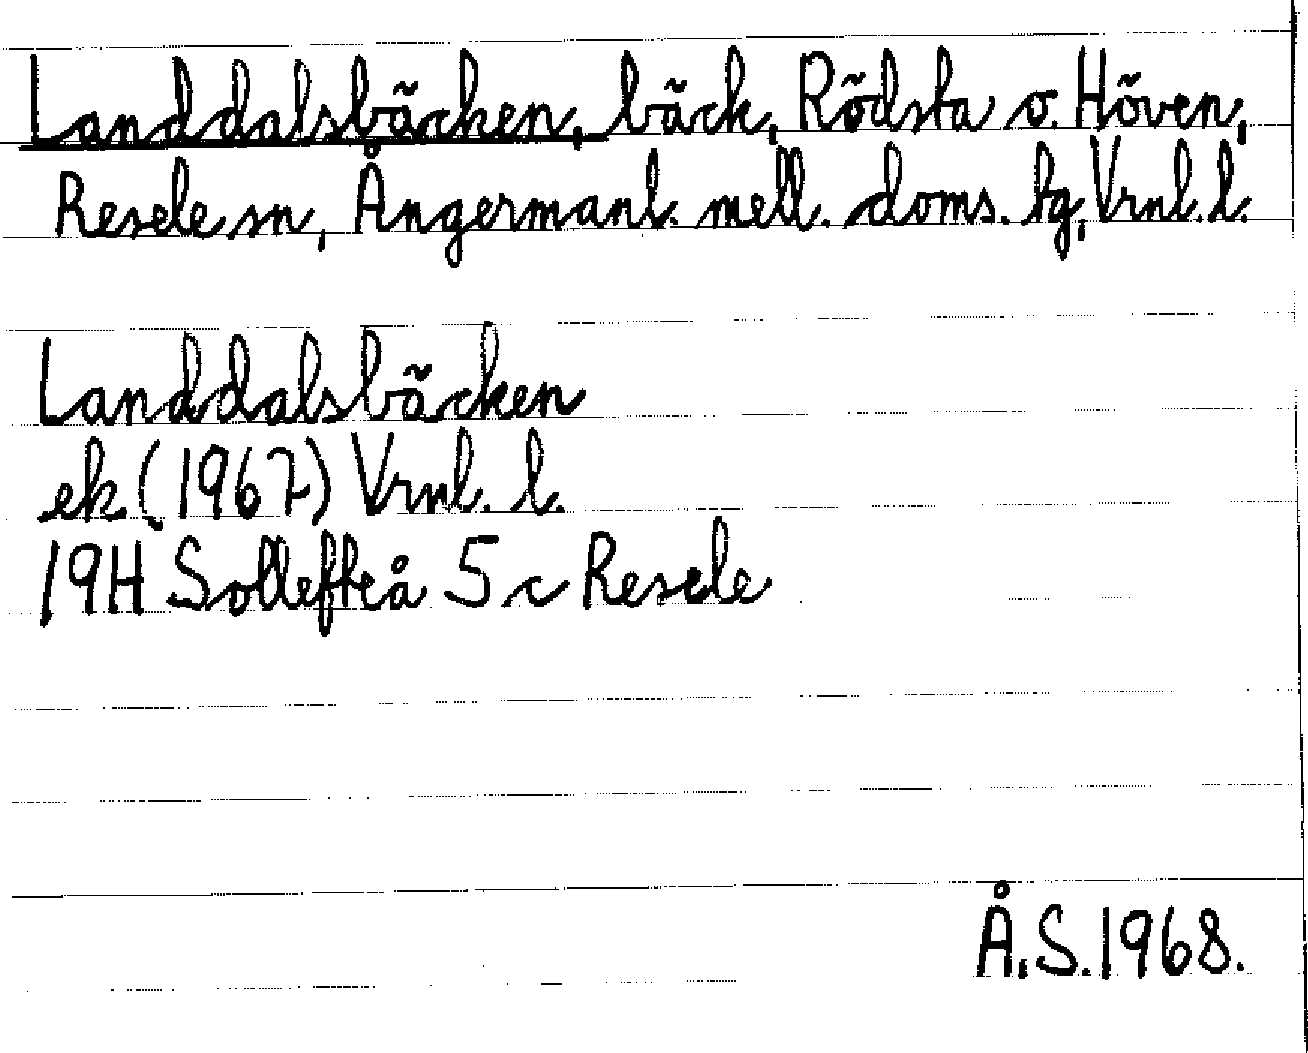 Landdalsbäcken, bäck, Rödsta o. Höven,
Resele sn, Ångermanl. mell. doms. tg, Vrnl. l.
Landdalsbäcken
ek (1967) Vrnl. l.
19H Sollefteå 5 c Resele
Å.S. 1968.